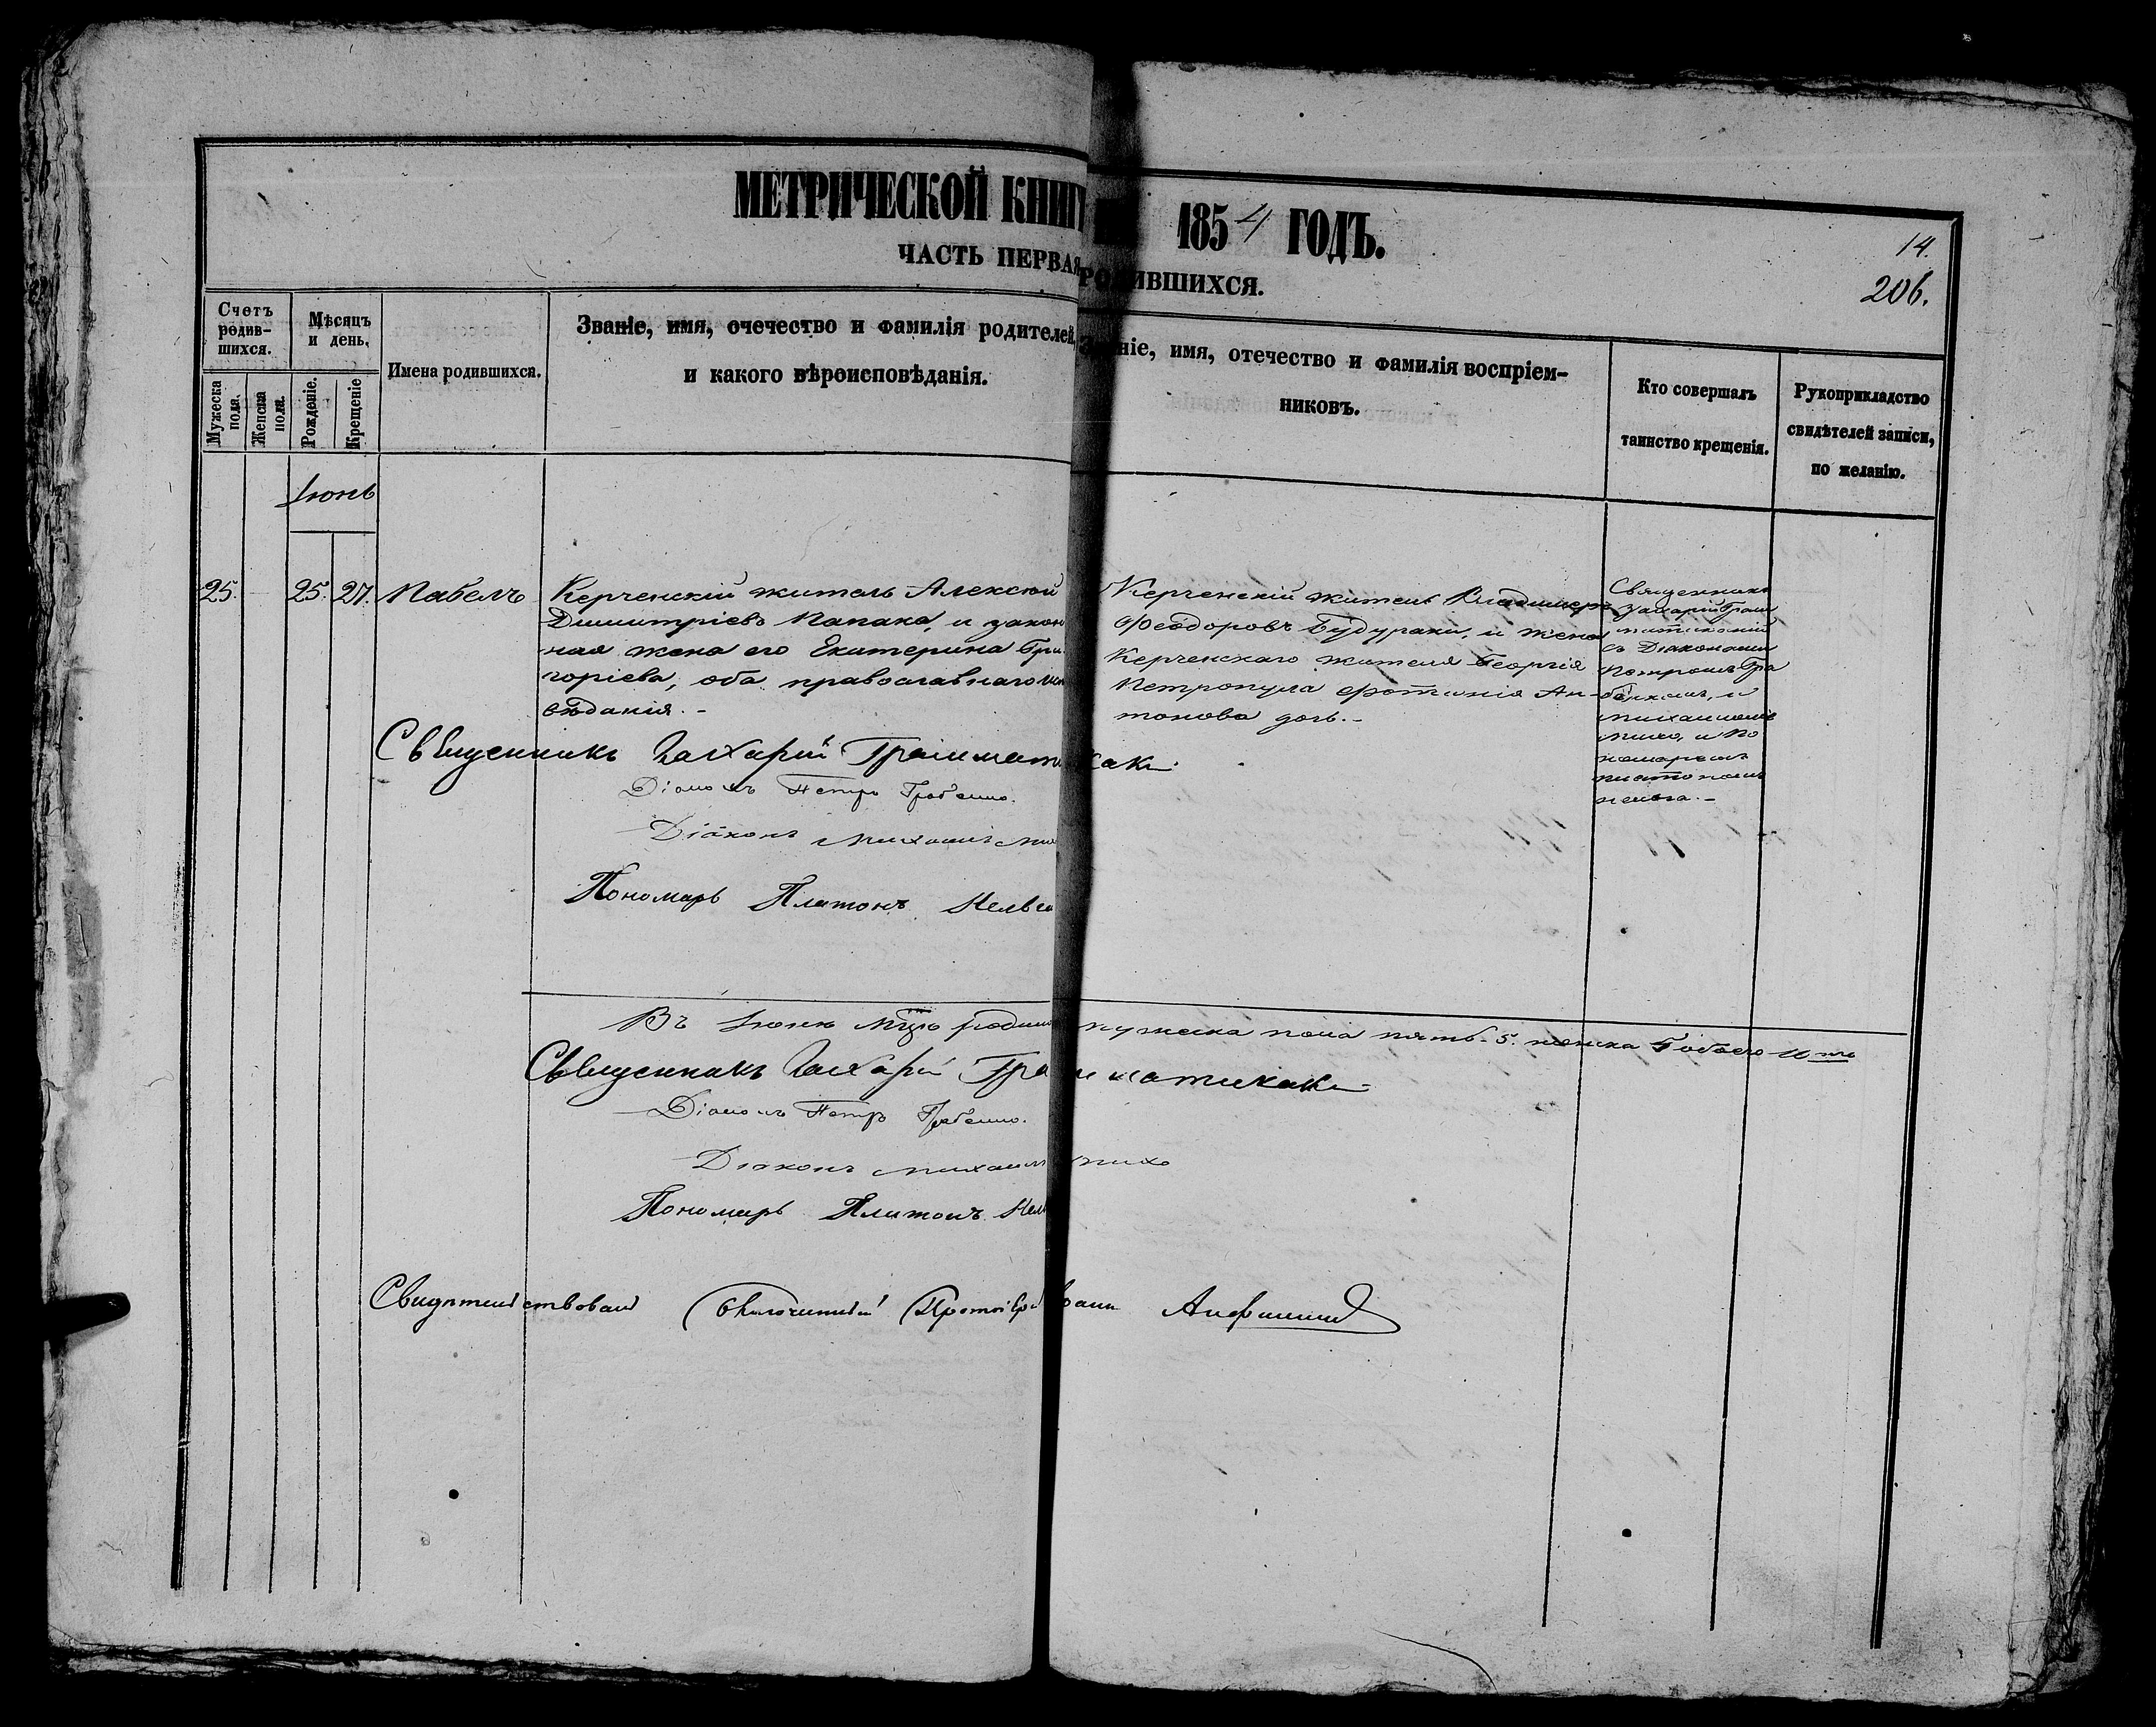 МЕТРИЧЕСКОЙ КНИГ 1854 ГОДЪ.
ЧАСТЬ ПЕРВАЯ РОДИВШИХСЯ.
14.
206.
Счетъ родив-шихся.
Мужеска пола.
Женска пола.
Мѣсяцъ и день.
Рожденіе.
Крещеніе
Имена родившихся.
Званіе, имя, очечество и фамилія родителей,
и какого вѣроисповѣданія.
Званіе, имя, отечество и фамилія воспріем-
никовъ.
Кто совершалъ
таинство крещенія.
Рукоприкладство
свидѣтелей записи,
по желанію.
Іюнь
25. 25. 27. Павелъ
Керченскій житель Алексѣй
Димитріевъ Папака, и закон
ная жена его Екатерина Гри
горіева, оба православнаго
вѣданія.-
Керченскій житель Владимеръ
Феодоровъ Будураки, и жена
Керченскаго жителя Георгія
Петропула Фотинія Ан-
тонова дочь.-
Священникъ
Захарій Грам
матикакій
съ Діаконами
Петромъ Гра
бенкомъ, и
Михаиломъ
Михо, и По
номаремъ
Платономъ
Священникъ Захарій Грамматикаки
Діаконъ Петръ Грабенко.
Діаконъ Михаилъ Ми
Пономарь Платонъ
Въ Іюнѣ мцѣ родилось мужеска пола пять-5. женска 5 обоего 10ть
Священникъ Захарій Грамматикаки
Діаконъ Петръ Грабенко.
Діаконъ Михаилъ Михо
Пономарь Платонъ
Свидѣтельствовалъ Благочинный Протоіерей